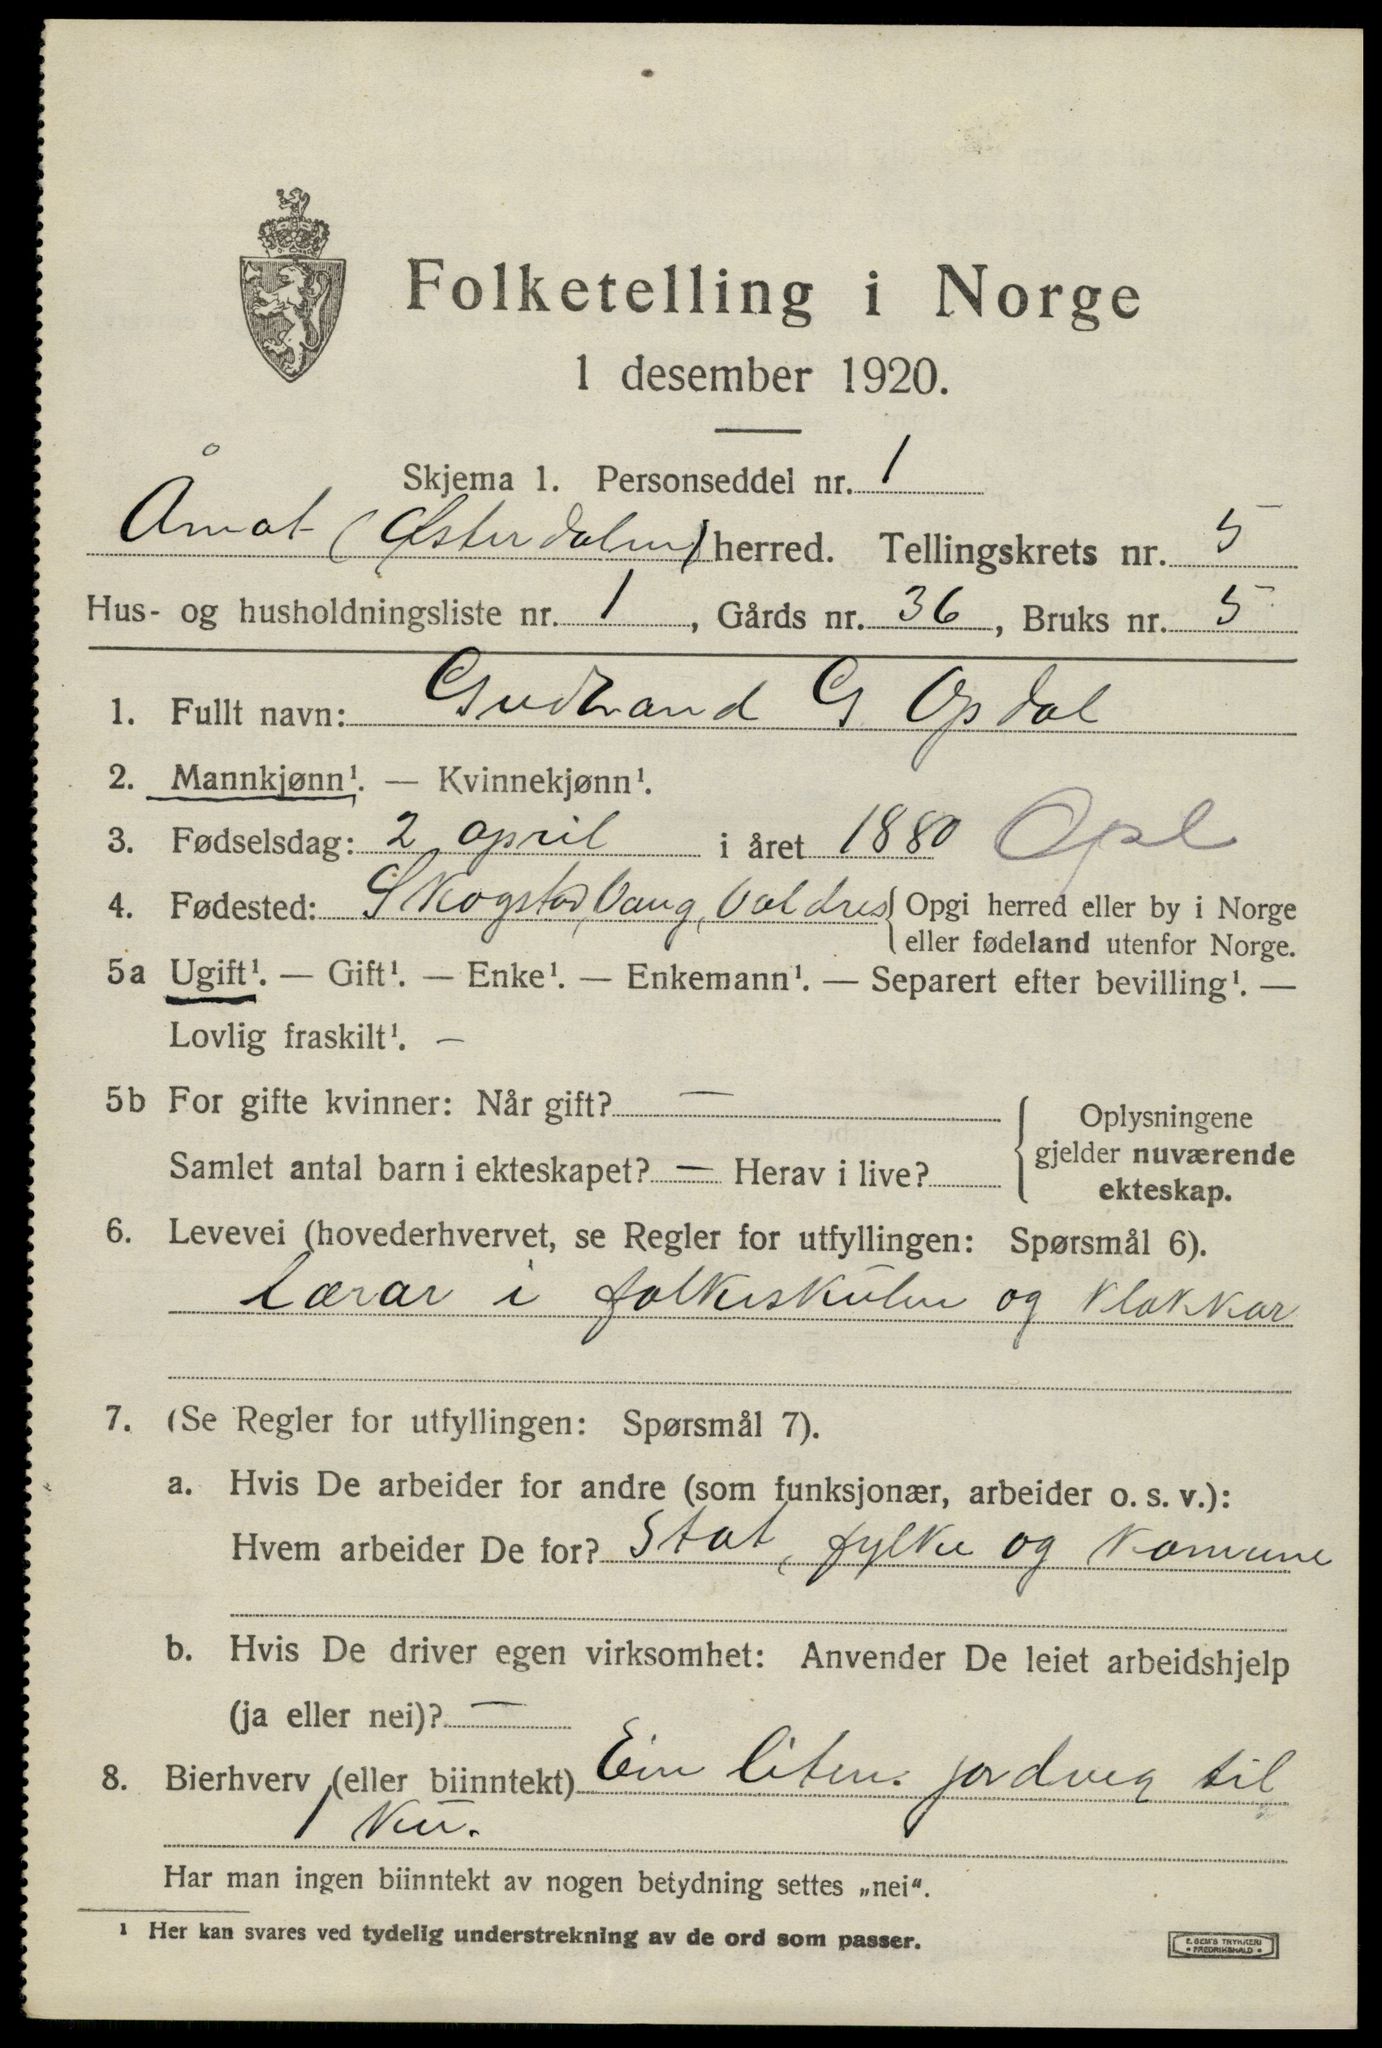 Folketelling i Norge
1 desember 1920.
Skjema 1. Personseddel nr. 1
Åmot (Østerdalen) herred. Tellingskrets nr. 5
Hus- og husholdningsliste nr. 1, Gårds nr. 36, Bruks nr. 5
1. Fullt navn: Gudbrand G Opdal
2. Mannkjønn¹. — Kvinnekjønn¹.
3. Fødselsdag: 2 april i året 1880 Opl
4. Fødested: Skogstad, Vang, Valdres { Opgi herred eller by i Norge
eller fødeland utenfor Norge.
5a Ugift¹. — Gift¹. — Enke¹. — Enkemann¹. — Separert efter bevilling¹. —
Lovlig fraskilt¹. —
5b For gifte kvinner: Når gift? —
Samlet antal barn i ekteskapet? — Herav i live?
Oplysningene
gjelder nuværende
ekteskap.
6. Levevei (hovederhvervet, se Regler for utfyllingen: Spørsmål 6).
Lærar i folkeskulen og klokkar
7. (Se Regler for utfyllingen: Spørsmål 7).
a. Hvis De arbeider for andre (som funksjonær, arbeider o. s. v.):
Hvem arbeider De for? Stat, fylke og komune
b. Hvis De driver egen virksomhet: Anvender De leiet arbeidshjelp
(ja eller nei)? —
8. Bierhverv (eller biinntekt) Ein liten jordveg til
1 ku.
Har man ingen biinntekt av nogen betydning settes „nei“.
¹ Her kan svares ved tydelig understrekning av de ord som passer.
E. SEM'S TRYKKERI
• FREDRIKSHALD •